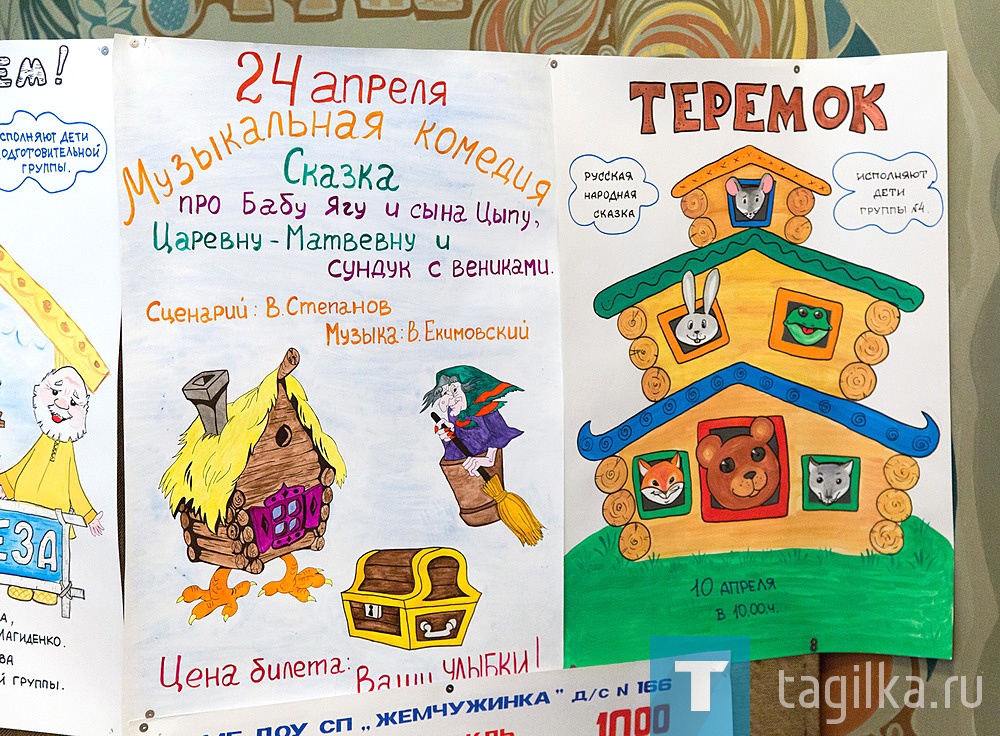 ЕМ!
ИСПОЛНЯЮТ ДЕТИ
ПОДГОТОВИТЕЛЬНОЙ
ГРУППЫ.
ЕЗА
МАГИДЕНКО.
Й ГРУППЫ.
24 апреля
Музыкальная комедия
Сказка
про Бабу Ягу и сына Цыпу,
Царевну-Матвевну и
сундук с вениками.
Сценарий: В.Степанов
Музыка: В.Екимовский
Цена билета: Ваши улыбки!
ТЕРЕМОК
РУССКАЯ
НАРОДНАЯ
СКАЗКА
ИСПОЛНЯЮТ
ДЕТИ
ГРУППЫ №4.
10 АПРЕЛЯ
В 10.00ч.
ДОУ СП „ЖЕМЧУЖИНКА" Д/С N 166
1000
T tagilka.ru